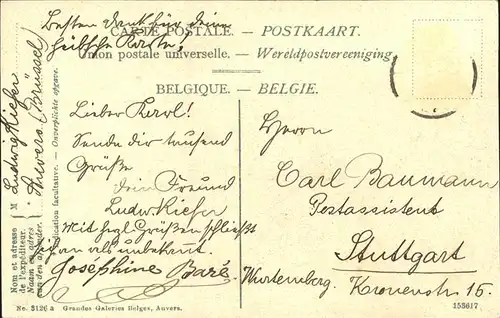 Besten Dank für deine
hübsche Karte!
CARTE POSTALE. — POSTKAART.
Union postale universelle. — Wereldpostvereeniging.
BELGIQUE. — BELGIE.
Nom et adresse
de l'expéditeur.
Naam en adres
van den afzender.
M Ludwig Kiefer
Anvers. (Brüssel)
Indication facultative. - Onverplichte opgave.
Lieber Karl!
Sende dir tausend
Grüße
dein Freund
Ludw Kiefer
Mit hrzl. Grüßen schließt
sich an als unbekannt.
Joséphine Baré.
Herrn
Carl Baumann
Postassistent
Stuttgart
Wurtemberg. Kronenstr 15.
No. 3126 a Grandes Galeries Belges, Anvers.
153617